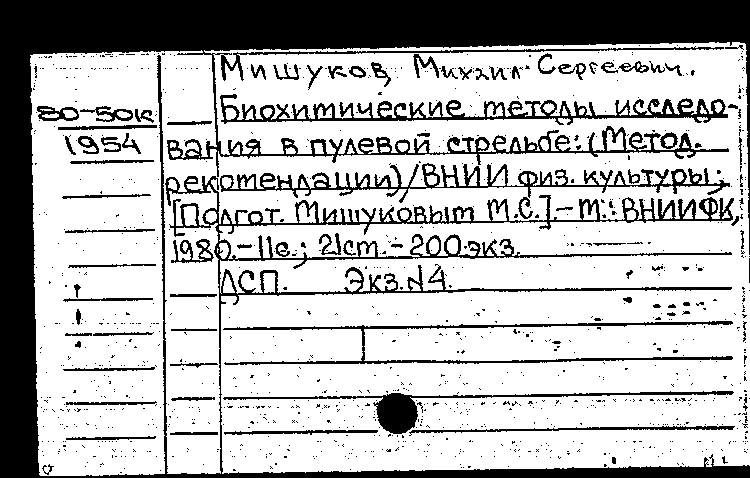 Мишуков, Михаил Сергеевич.
80-50к Биохимические методы исследо-
1954 вания в пулевой стрельбе: (Метод.
рекомендации)/ВНИИ физ. культуры;
[Подгот. Мишуковым М.С.].-М.: ВНИИФК,
1980.-11с.; 21см.-200экз.
ДСП. Экз.N4.